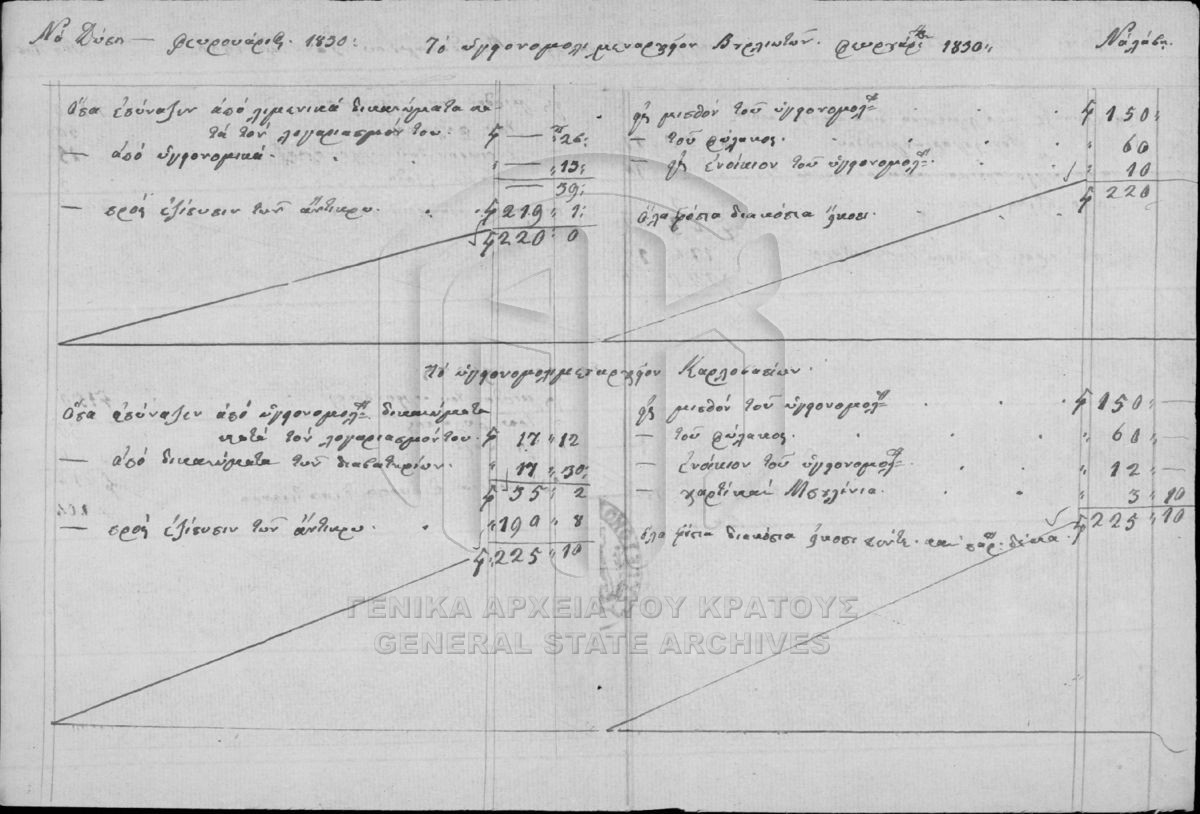 Νὰ Δώσῃ — Φευρουάριος 1830: Τὸ ὑγειονομολιμεναρχεῖον Βυρλιωτῶν. Φευρουάριος 1830 Νὰ λάβῃ
Ὅσα ἐσύναξεν ἀπὸ λιμενικὰ δικαιώματα κα-
τὰ τὸν λογαριασμόν του: — 26:
— ἀπὸ ὑγειονομικά. — 13:
— 39:
— πρὸς ἐξίσωσιν τῶν ἄντικρυ. 219 1:
220 0
μισθὸν τοῦ ὑγειονομολ. 150
— τοῦ φύλακος. 60
— ἐνοίκιον τοῦ ὑγειονομολ. 10
220
ὅλα γρόσια διακόσια εἴκοσι.
Τὸ ὑγειονομολιμεναρχεῖον Καρλοβασίων.
Ὅσα ἐσύναξεν ἀπὸ ὑγειονομολ. δικαιώματα
κατὰ τὸν λογαριασμόν του. 17 12
— ἀπὸ δικαιώματα τῶν διαβατηρίων. 17 30:
35 2
— πρὸς ἐξίσωσιν τῶν ἄντικρυ. 190 8
225 10
μισθὸν τοῦ ὑγειονομολ. 150 —
— τοῦ φύλακος. 60 —
— ἐνοίκιον τοῦ ὑγειονομολ. 12 —
— χαρτί καὶ 3 10
225 10
ὅλα γρόσια διακόσια εἴκοσι πέντε καὶ παρ. δέκα
ΓΕΝΙΚΑ ΑΡΧΕΙΑ ΤΟΥ ΚΡΑΤΟΥΣ
GENERAL STATE ARCHIVES